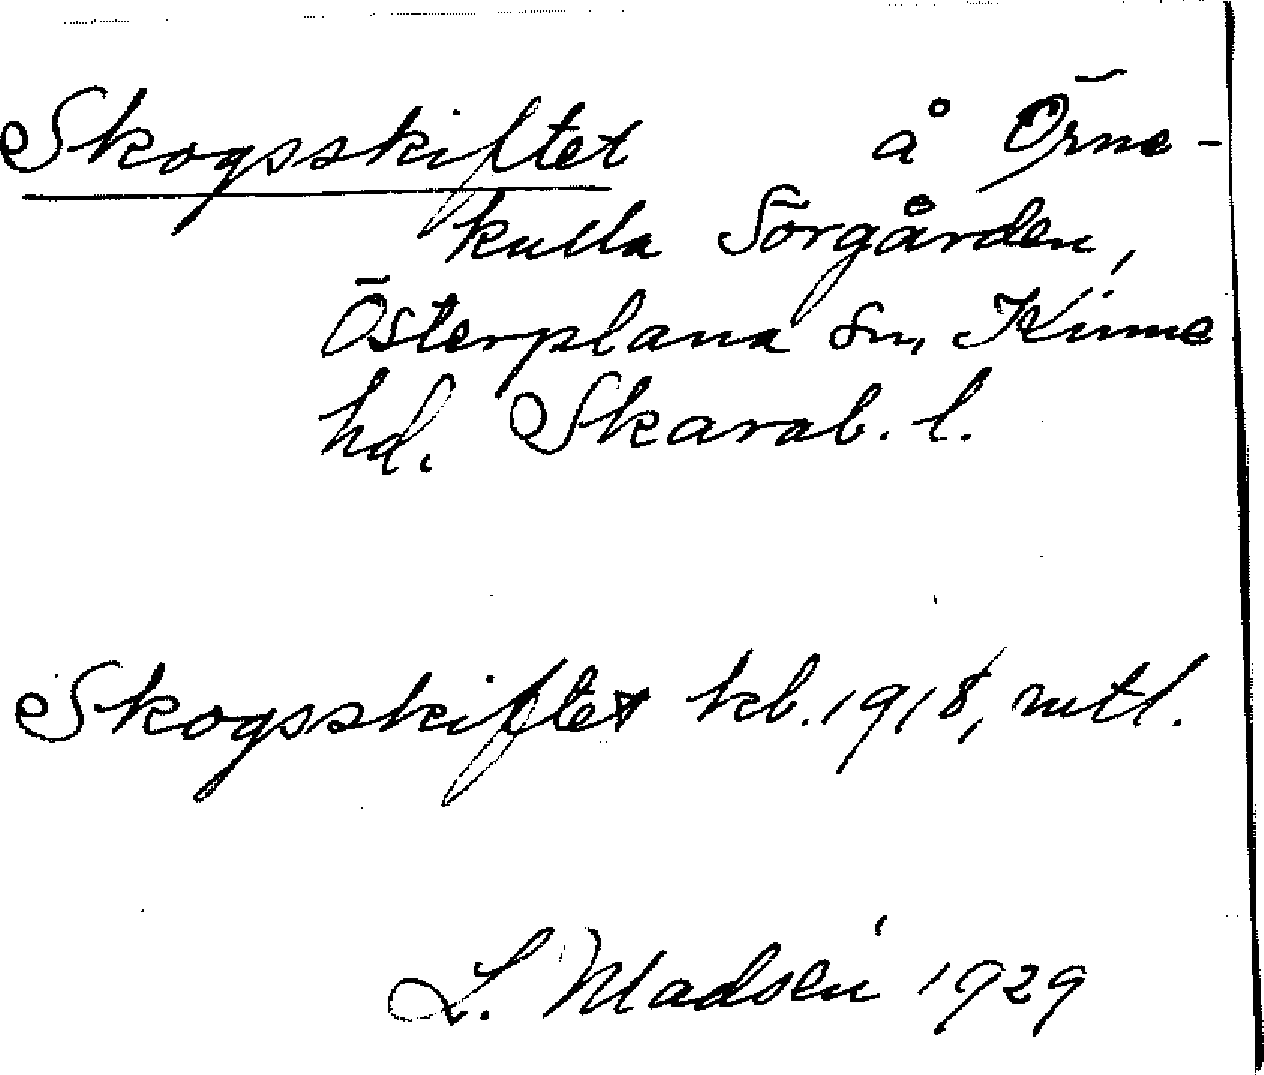 Skogsskiftet å Örne-
kulla Sörgården,
Österplana sn, Kinne
hd. Skarab. l.
Skogsskiftet kb. 1918, mtl.
L. Madsén 1929